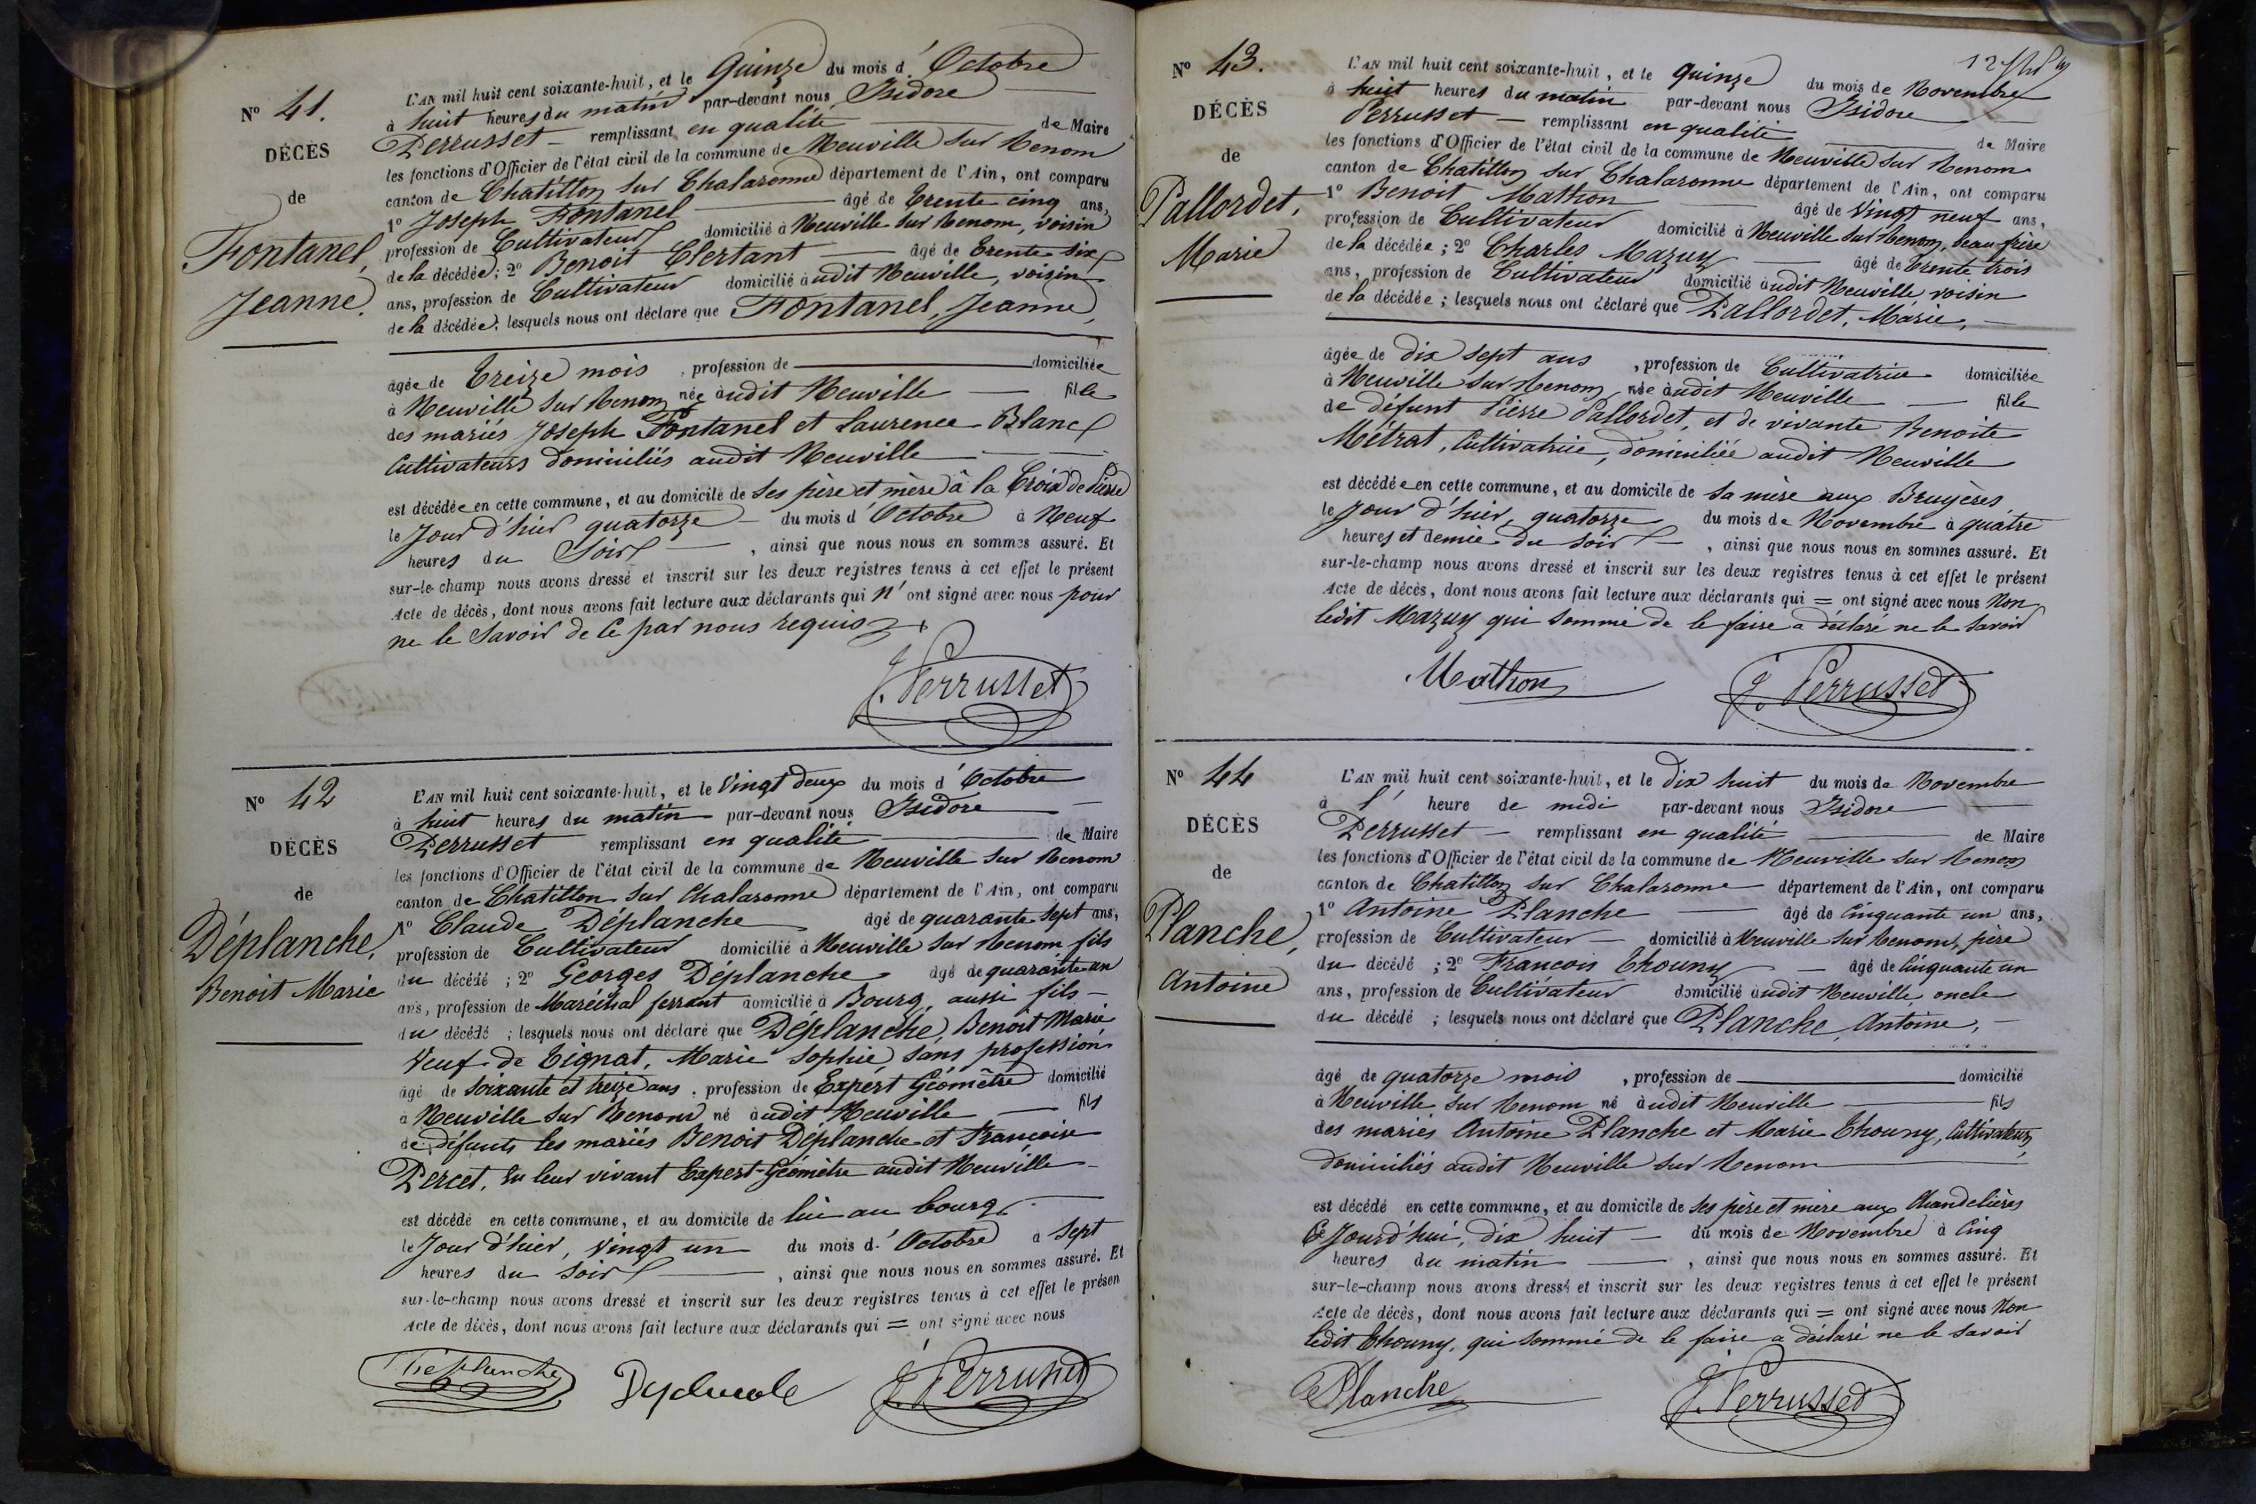 N° 41.
DÉCÈS
de
Fontanel,
Jeanne.
L'AN mil huit cent soixante-huit, et le Quinze du mois d'Octobre
à huit heures du matin par-devant nous Isidore
Perrusset remplissant en qualité de Maire
les fonctions d'Officier de l'état civil de la commune de Neuville sur Renom
canton de Chatillon sur Chalaronne département de l'Ain, ont comparu
1° Joseph Fontanel âgé de trente cinq ans,
profession de Cultivateur domicilié à Neuville sur Renom, voisin
de la décédée; 2° Benoit Clertant âgé de trente six
ans, profession de Cultivateur domicilié audit Neuville, voisin
de la décédée; lesquels nous ont déclaré que Fontanel, Jeanne,
âgée de treize mois, profession de domiciliée
à Neuville sur Renom née audit Neuville fille
des mariés Joseph Fontanel et Laurence Blanc
Cultivateurs domiciliés audit Neuville
est décédée en cette commune, et au domicile de ses père et mère à la Croix de Pierre
le Jour d'hier quatorze du mois d'Octobre à Neuf
heures du Soir, ainsi que nous nous en sommes assuré. Et
sur-le-champ nous avons dressé et inscrit sur les deux registres tenus à cet effet le présent
Acte de décès, dont nous avons fait lecture aux déclarants qui n'ont signé avec nous pour
ne le Savoir de ce par nous requis
J. Perrusset
N° 42
DÉCÈS
de
Déplanche,
Benoit Marie
L'AN mil huit cent soixante-huit, et le Vingt deux du mois d'Octobre
à huit heures du matin par-devant nous Isidore
Perrusset remplissant en qualité de Maire
les fonctions d'Officier de l'état civil de la commune de Neuville sur Renom
canton de Chatillon sur Chalaronne département de l'Ain, ont comparu
1° Claude Déplanche âgé de quarante sept ans,
profession de Cultivateur domicilié à Neuville sur Renom fils
du décédé; 2° Georges Déplanche âgé de quarante un
ans, profession de Maréchal ferrant domicilié à Bourg, aussi fils
du décédé; lesquels nous ont déclaré que Déplanche, Benoit Marie
Veuf de Tignat, Marie Sophie sans profession
âgé de soixante et treize ans, profession de Expert Géomètre domicilié
à Neuville sur Renom né audit Neuville fils
de défunts les mariés Benoit Déplanche et Françoise
Percet, En leur vivant Expert-Géomètre audit Neuville
est décédé en cette commune, et au domicile de lui au bourg
le Jour d'hier, vingt un du mois d'Octobre à Sept
heures du Soir, ainsi que nous nous en sommes assuré. Et
sur-le-champ nous avons dressé et inscrit sur les deux registres tenus à cet effet le présen
Acte de décès, dont nous avons fait lecture aux déclarants qui = ont signé avec nous
Déplanche J. Perrusset
N° 43.
DÉCÈS
de
Pallordet,
Marie
L'AN mil huit cent soixante-huit, et le quinze du mois de Novembre
à huit heures du matin par-devant nous Isidore
Perrusset remplissant en qualité de Maire
les fonctions d'Officier de l'état civil de la commune de Neuville sur Renom
canton de Chatillon sur Chalaronne département de l'Ain, ont comparu
1° Benoit Mathon âgé de Vingt neuf ans,
profession de Cultivateur domicilié à Neuville sur Renom, beau frère
de la décédée; 2° Charles Mazuy âgé de trente trois
ans, profession de Cultivateur domicilié audit Neuville voisin
de la décédée; lesquels nous ont déclaré que Pallordet, Marie,
âgée de dix sept ans, profession de Cultivatrice domiciliée
à Neuville sur Renom, née audit Neuville fille
de défunt Pierre Pallordet, et de vivante Benoite
Métrat, Cultivatrice, domiciliée audit Neuville
est décédée en cette commune, et au domicile de sa mère aux Bruyères
le Jour d'hier, quatorze du mois de Novembre à quatre
heures et demie du soir, ainsi que nous nous en sommes assuré. Et
sur-le-champ nous avons dressé et inscrit sur les deux registres tenus à cet effet le présent
Acte de décès, dont nous avons fait lecture aux déclarants qui = ont signé avec nous Non
ledit Mazuy qui sommé de le faire a déclaré ne le savoir
Mathon J. Perrusset
N° 44
DÉCÈS
de
Planche,
Antoine
L'AN mil huit cent soixante-huit, et le dix huit du mois de Novembre
à l' heure de midi par-devant nous Isidore
Perrusset remplissant en qualité de Maire
les fonctions d'Officier de l'état civil de la commune de Neuville sur Renom
canton de Chatillon sur Chalaronne département de l'Ain, ont comparu
1° Antoine Planche âgé de Cinquante un ans,
profession de Cultivateur domicilié à Neuville sur Renom, père
du décédé; 2° François Thouny âgé de Cinquante un
ans, profession de Cultivateur domicilié audit Neuville, oncle
du décédé; lesquels nous ont déclaré que Planche, Antoine,
âgé de quatorze mois, profession de domicilié
à Neuville sur Renom né audit Neuville fils
des mariés Antoine Planche et Marie Thouny, Cultivateurs,
domiciliés audit Neuville sur Renom
est décédé en cette commune, et au domicile de ses père et mère aux Chandelières
Ce Jourd'hui, dix huit du mois de Novembre à Cinq
heures du matin, ainsi que nous nous en sommes assuré. Et
sur-le-champ nous avons dressé et inscrit sur les deux registres tenus à cet effet le présent
Acte de décès, dont nous avons fait lecture aux déclarants qui = ont signé avec nous Non
ledit Thouny, qui sommé de le faire a déclaré ne le savoir
Planche J. Perrusset